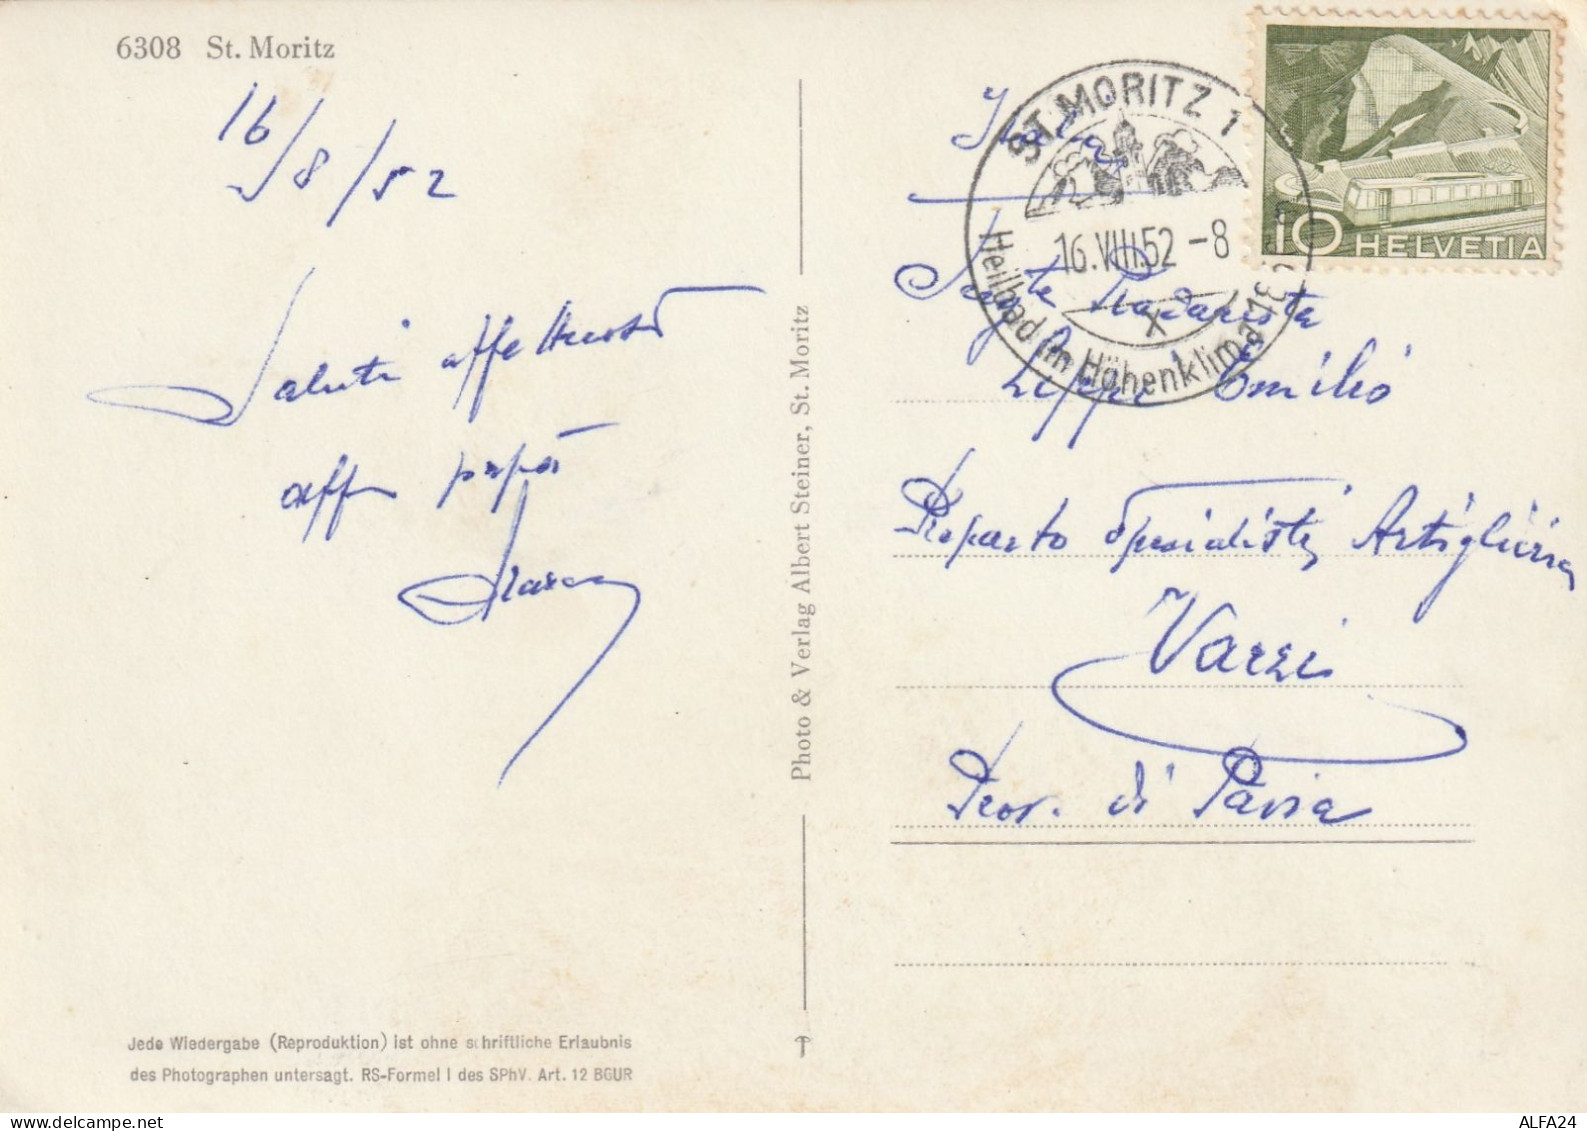 6308 St. Moritz
16/8/52
Saluti affettuosi
aff papà
Photo & Verlag Albert Steiner, St. Moritz
Jede Wiedergabe (Reproduktion) ist ohne schriftliche Erlaubnis
des Photographen untersagt. RS-Formel I des SPhV. Art. 12 BGUR
ST. MORITZ 1
16.VIII.52 -8
X
Heilbad im Höhenklima
10 HELVETIA
Italia
Radarista
Emilio
Reparto Specialisti Artiglieria
Varzi
Prov. di Pavia
ALFA24